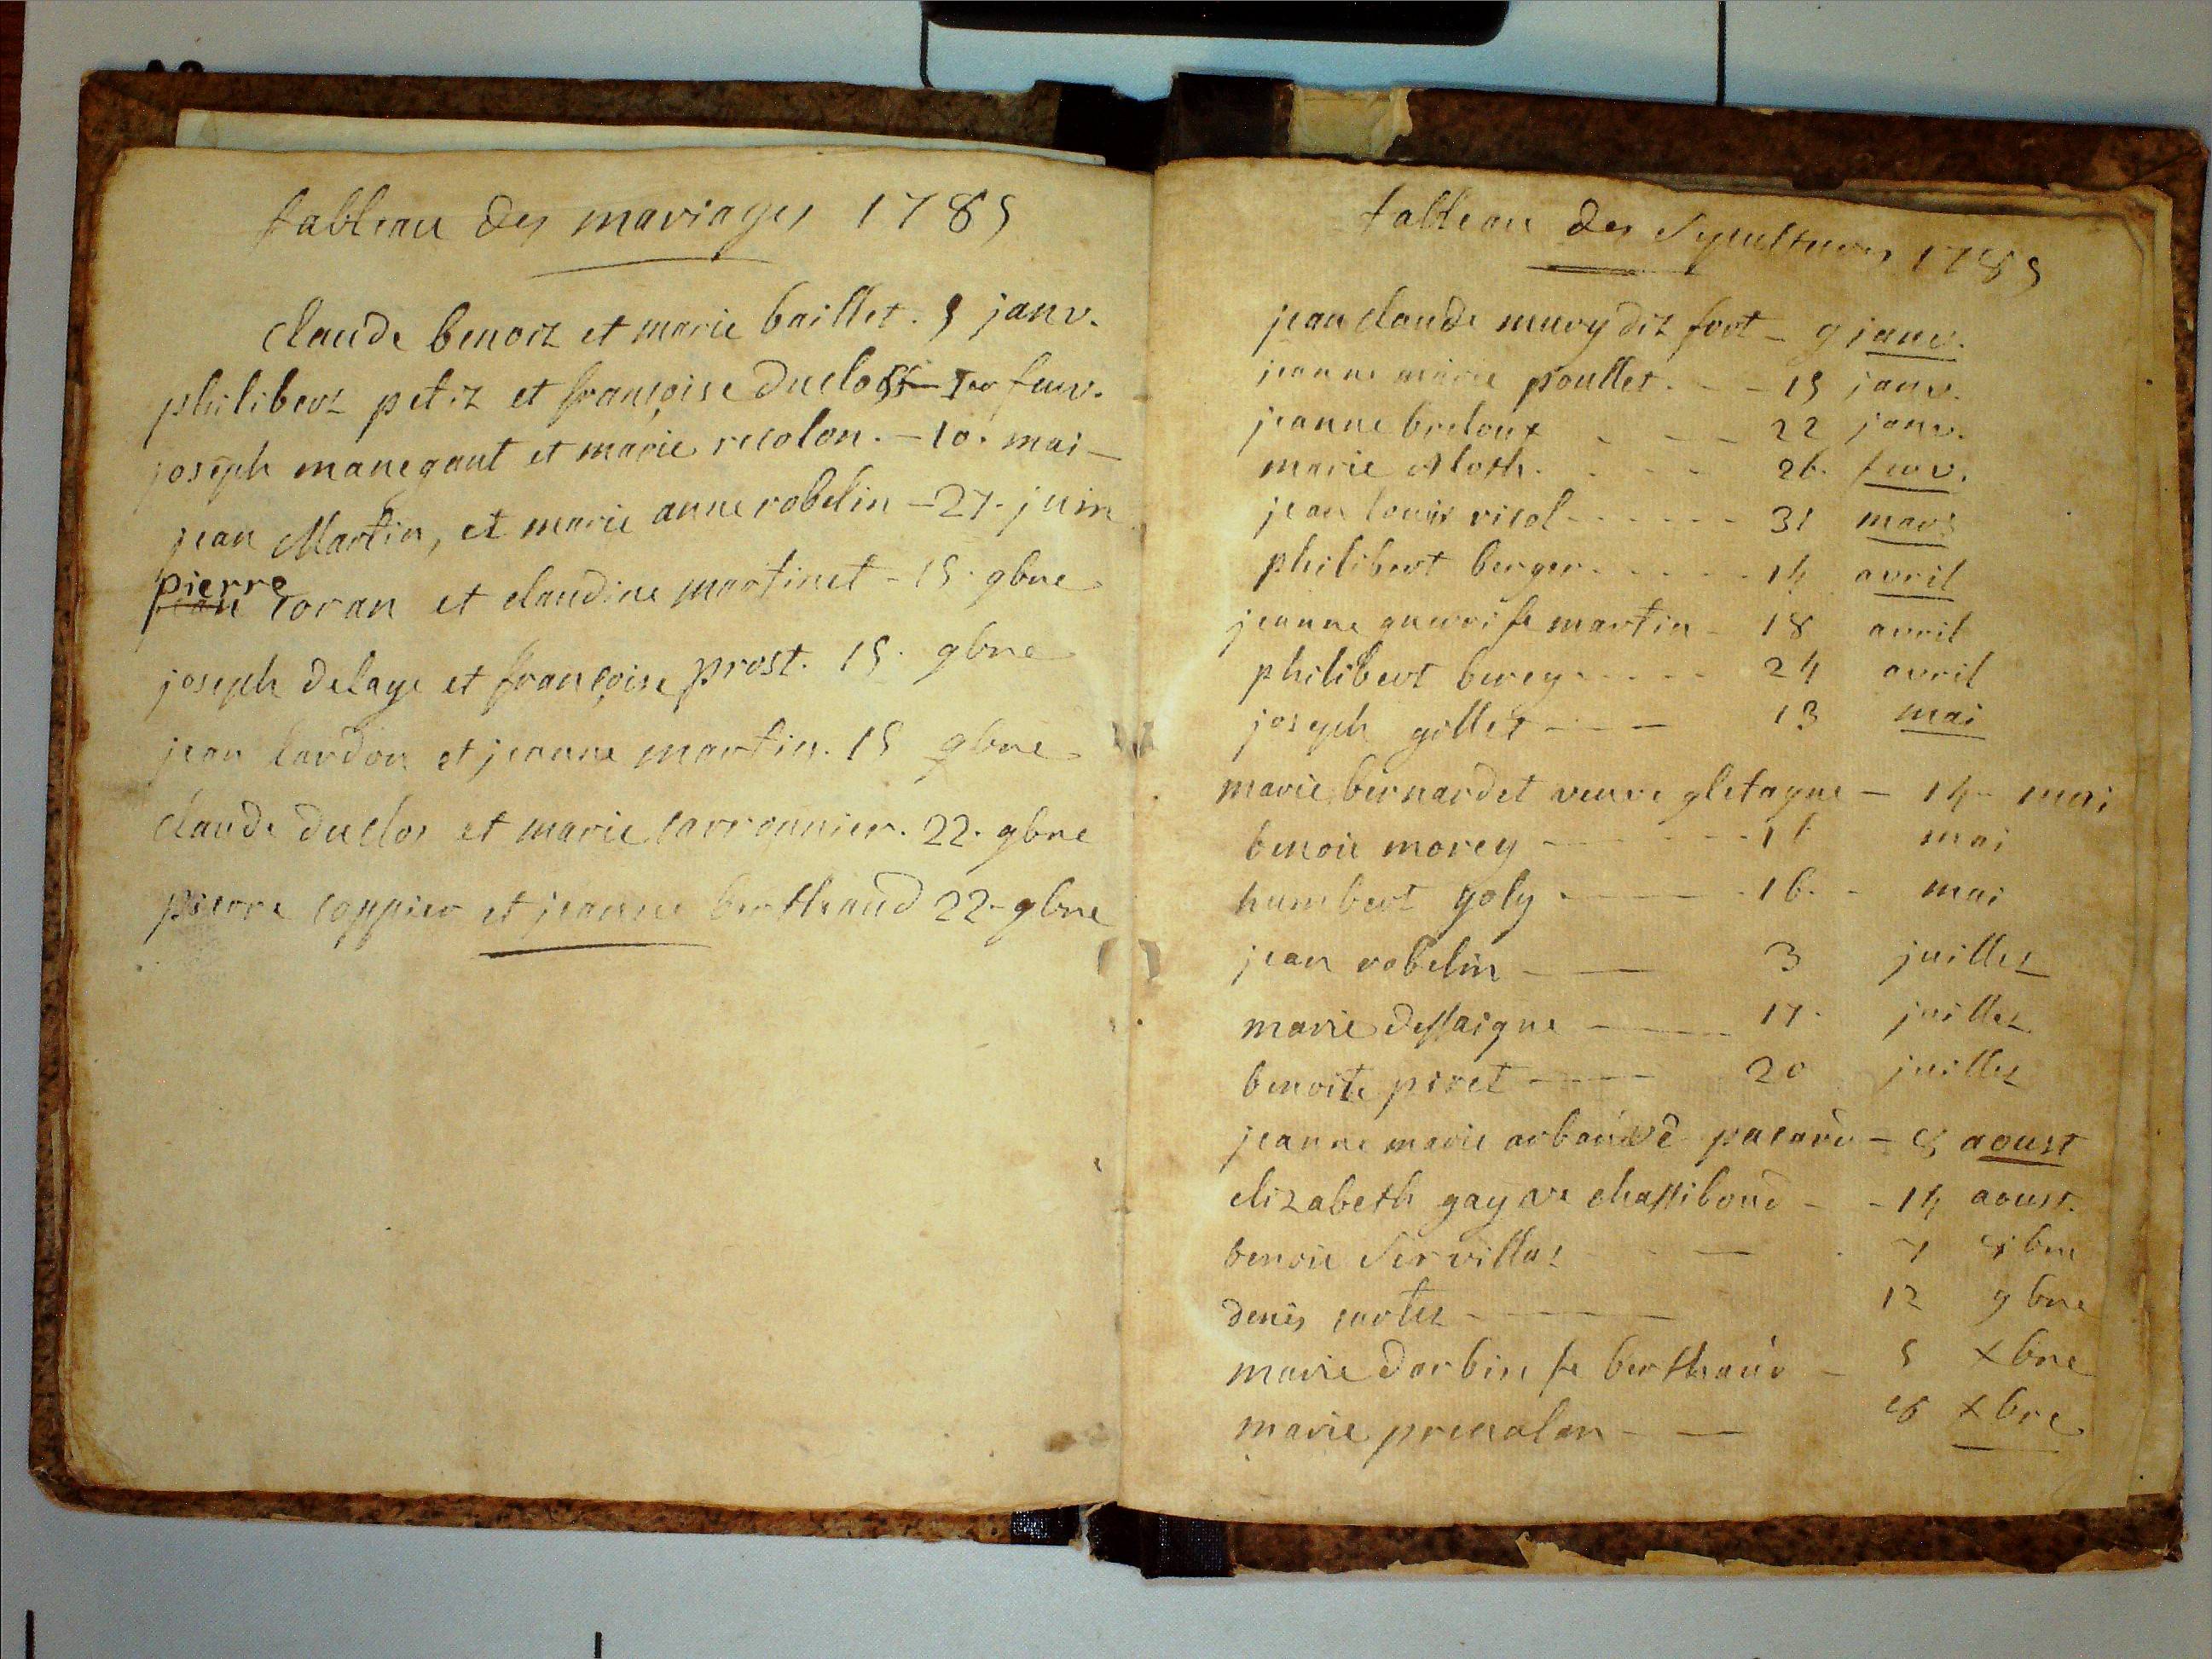 tableau des mariages 1785
claude benoit et marie baillet. 5 janv.
philibert petit et françoise duclos 1er fevv.
joseph manegaut et marie recolon. - 10. mai -
jean Martin, et marie anne robelin - 27. juin
pierre
jean coran et claudine martinet - 15. 9bre
joseph delaye et françoise prost. 15. 9bre
jean lardon et jeanne martin. 15 9bre
claude duclos et marie carronnier. 22. 9bre
pierre coppier et jeanne berthaud 22 - 9bre
tableau des Sepultures 1785
jean claude mury dit fort - 9 janv.
jeanne marie poullet. - - 15 janv.
jeanne breloux - - - 22 janv.
marie Aloth. - - - 26. fevv.
jean louis ricol - - - - - 31 mars
philibert berger - - - - - 14 avril
jeanne guerri fe martin - 18 avril
philibert berey - - - - 24 avril
joseph gillet - - - 13 mai
marie bernardet veuve gletagne - 14 - mai
benoit morey - - - - - mai
humbert goly - - - - 16. - mai
jean robelin - - 3 juillet
marie dessaigne - - 17. juillet
benoite piret - - - 20 juillet
jeanne marie arbain ve pacard - 5 aoust
elizabeth gay ve chassiboud - - 14 aoust.
benoit Servillat - - - 7 8bre
denis cartet - - - - 12 9bre
marie darbin fe berthaud - 5 xbre
marie prevalon - - 18 xbre